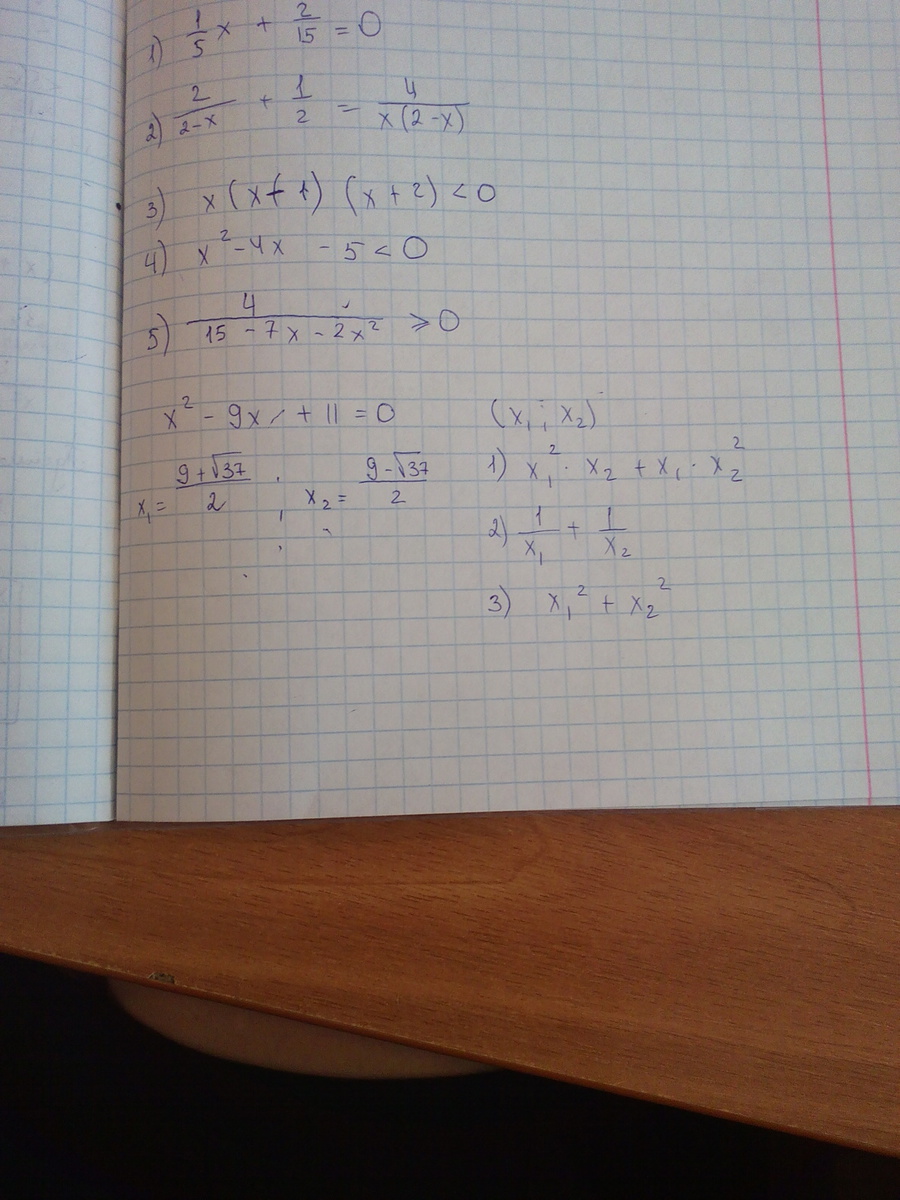 1) 1/5 x + 2/15 = 0
2) 2/(2-x) + 1/2 = 4/(x(2-x))
3) x(x+1) (x+2) < 0
4) x² - 4x - 5 < 0
5) 4/(15 - 7x - 2x²) ⩾ 0
x² - 9x + 11 = 0
x₁ = (9+√37)/2 , x₂ = (9-√37)/2
(x₁; x₂)
1) x₁² · x₂ + x₁ · x₂²
2) 1/x₁ + 1/x₂
3) x₁² + x₂²